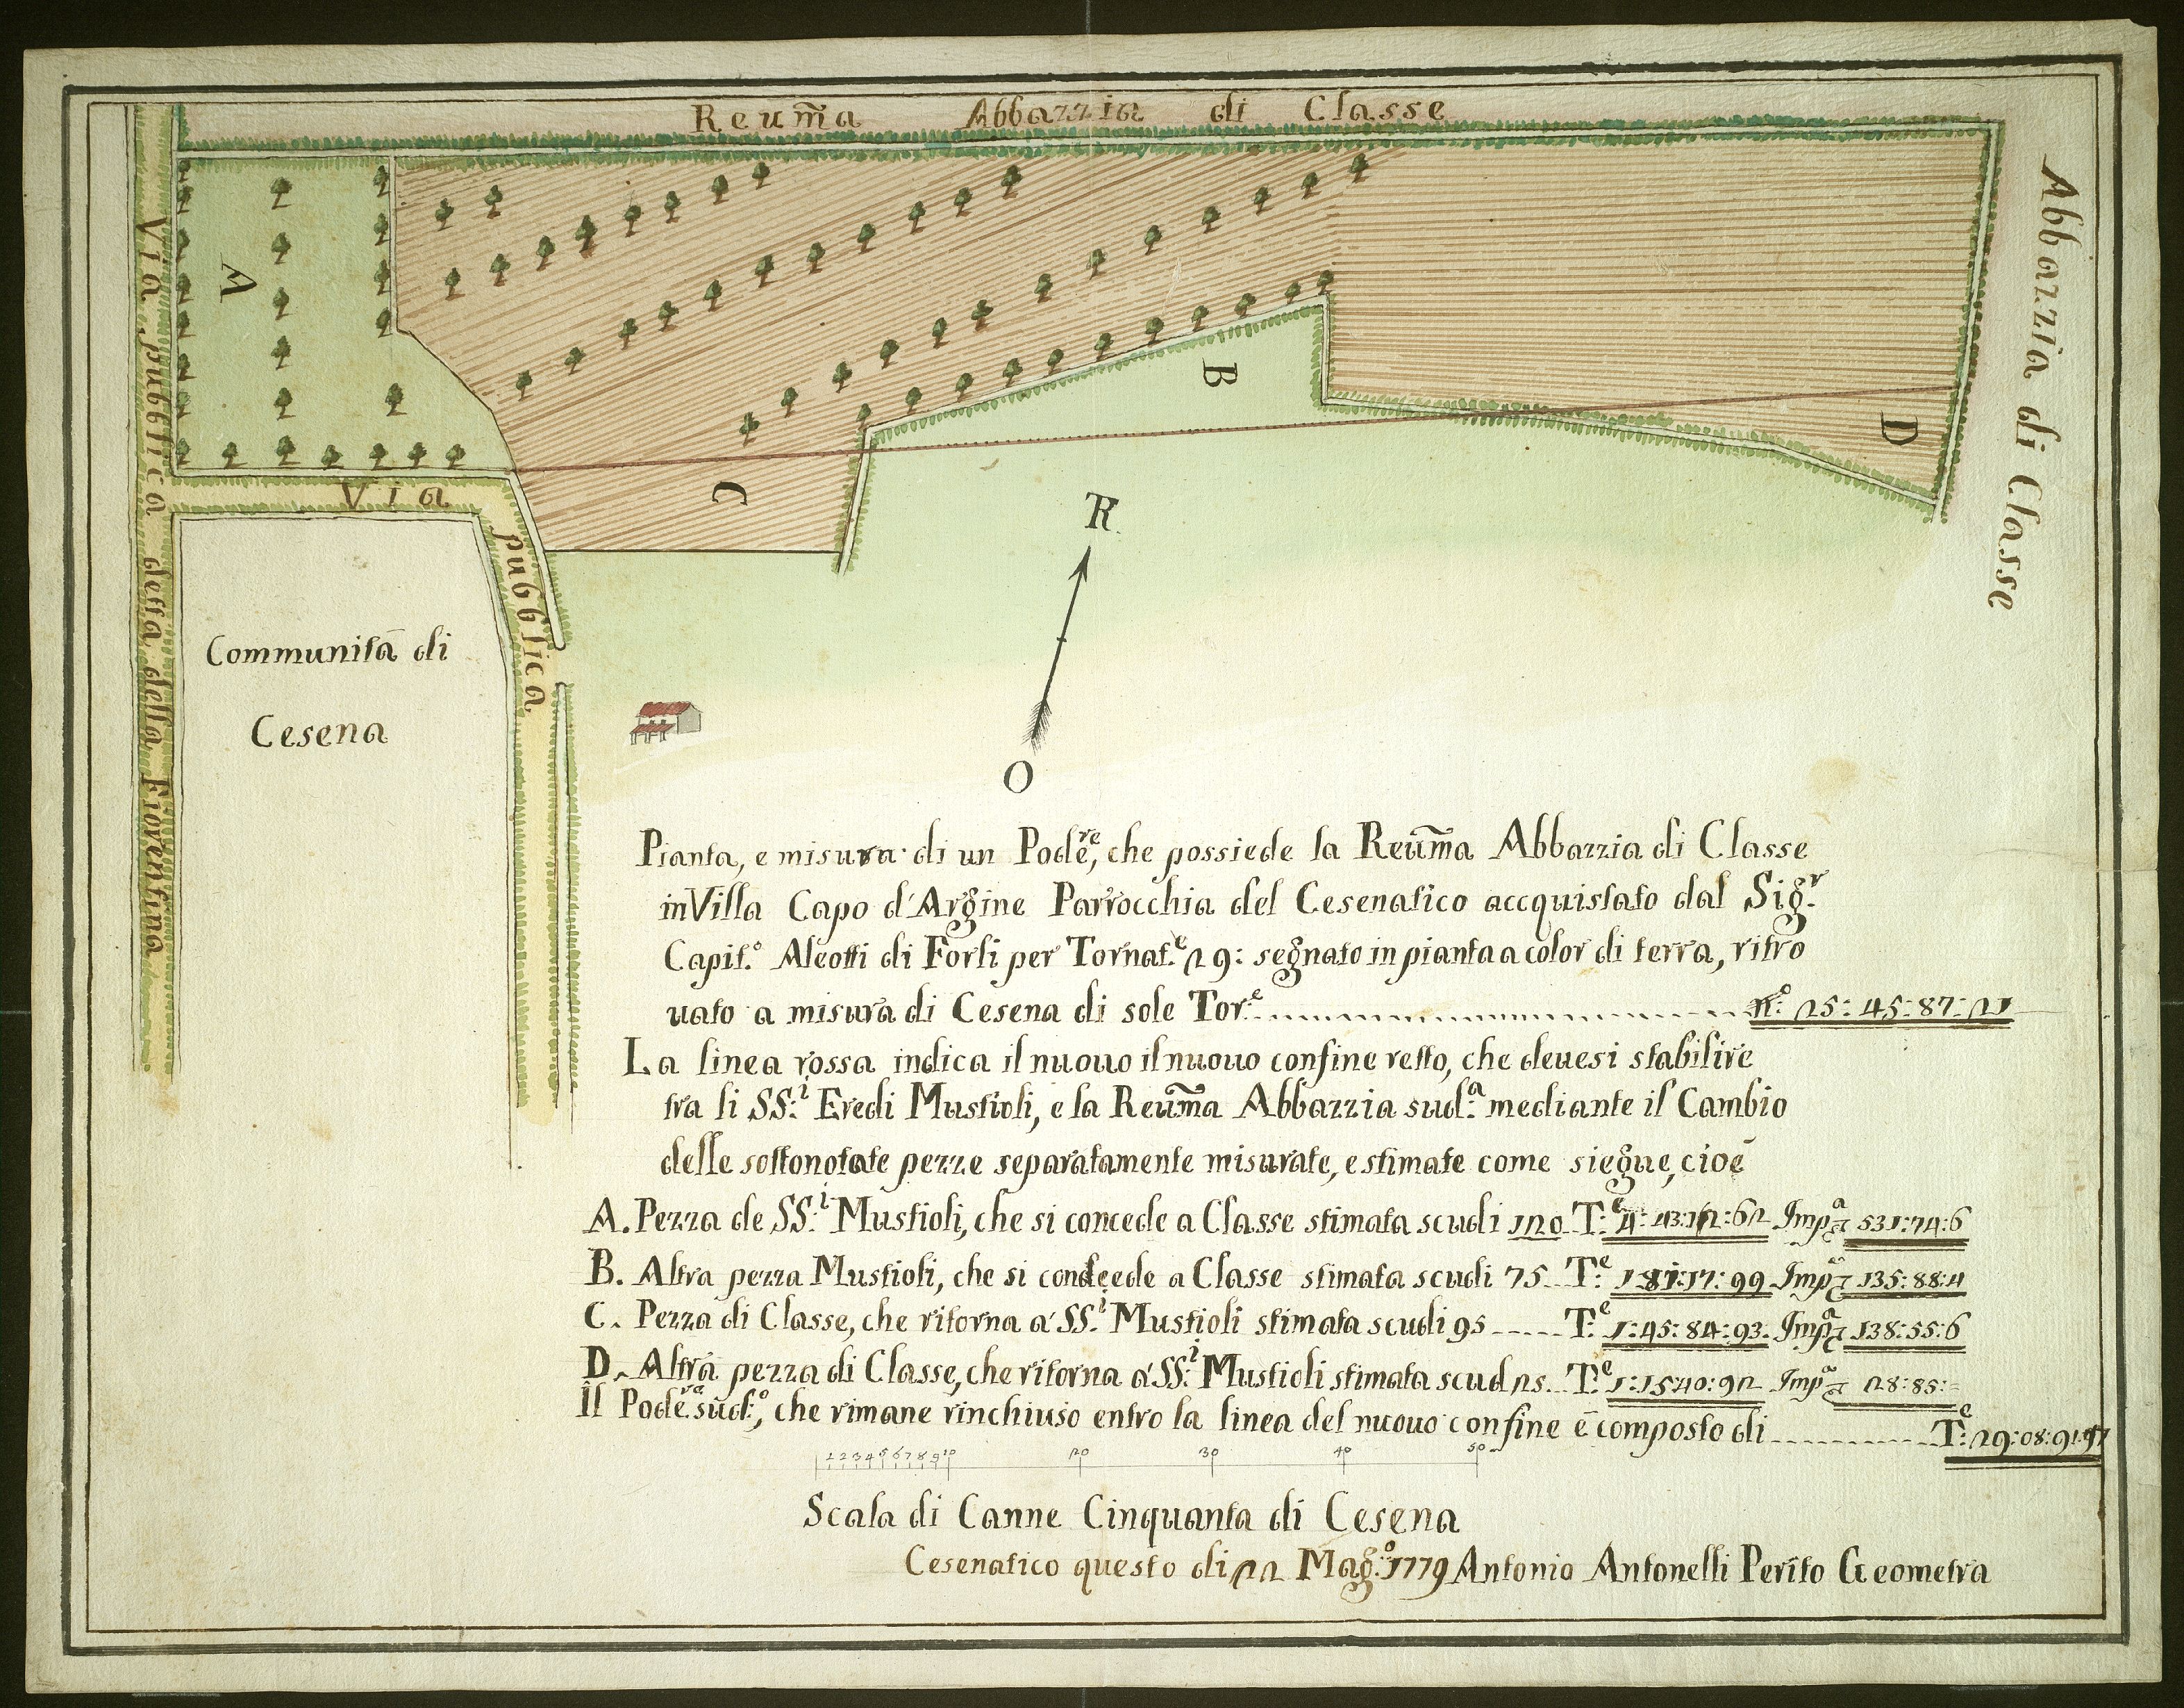 Reuma Abbazzia di Classe
Abbazzia di Classe
Via pubblica detta della Fiorentina
A
B
C
D
Via
pubblica
Communità di
Cesena
R
O
Pianta, e misura di un Podere, che possiede la Reuma Abbazzia di Classe
in Villa Capo d'Argine Parrocchia del Cesenatico accquistato dal Sig.r
Capit.o Aleotti di Forli per Tornat.e 29: segnato in pianta a color di terra, ritro
uato a misura di Cesena di sole Tor.e n.o 25: 45: 87: 21
La linea rossa indica il nuouo il nuouo confine retto, che deuesi stabilire
tra li SS.i Eredi Mustioli, e la Reuma Abbazzia sud.a mediante il Cambio
delle sottonotate pezze separatamente misurate, e stimate come siegue, cioè
A. Pezza de SS.i Mustioli, che si concede a Classe stimata scudi 120 T.e Imp.a 531:74:6
B. Altra pezza Mustioli, che si concede a Classe stimata scudi 75 T.e Imp.a 135:88:4
C. Pezza di Classe, che ritorna a' SS.i Mustioli stimata scudi 95 T.e 1:45:84:93. Imp.a 138:55:6
D. Altra pezza di Classe, che ritorna a' SS.i Mustioli stimata scud 25 T.e 1:15:40:92 Imp.a 28:85:
Il Pode.re sud.o, che rimane rinchiuso entro la linea del nuouo confine è composto di T.e 29:08:91:
1 2 3 4 5 6 7 8 9 10 20 30 40 50
Scala di Canne Cinquanta di Cesena
Cesenatico questo di 22 Mag.o 1779 Antonio Antonelli Perito Geometra